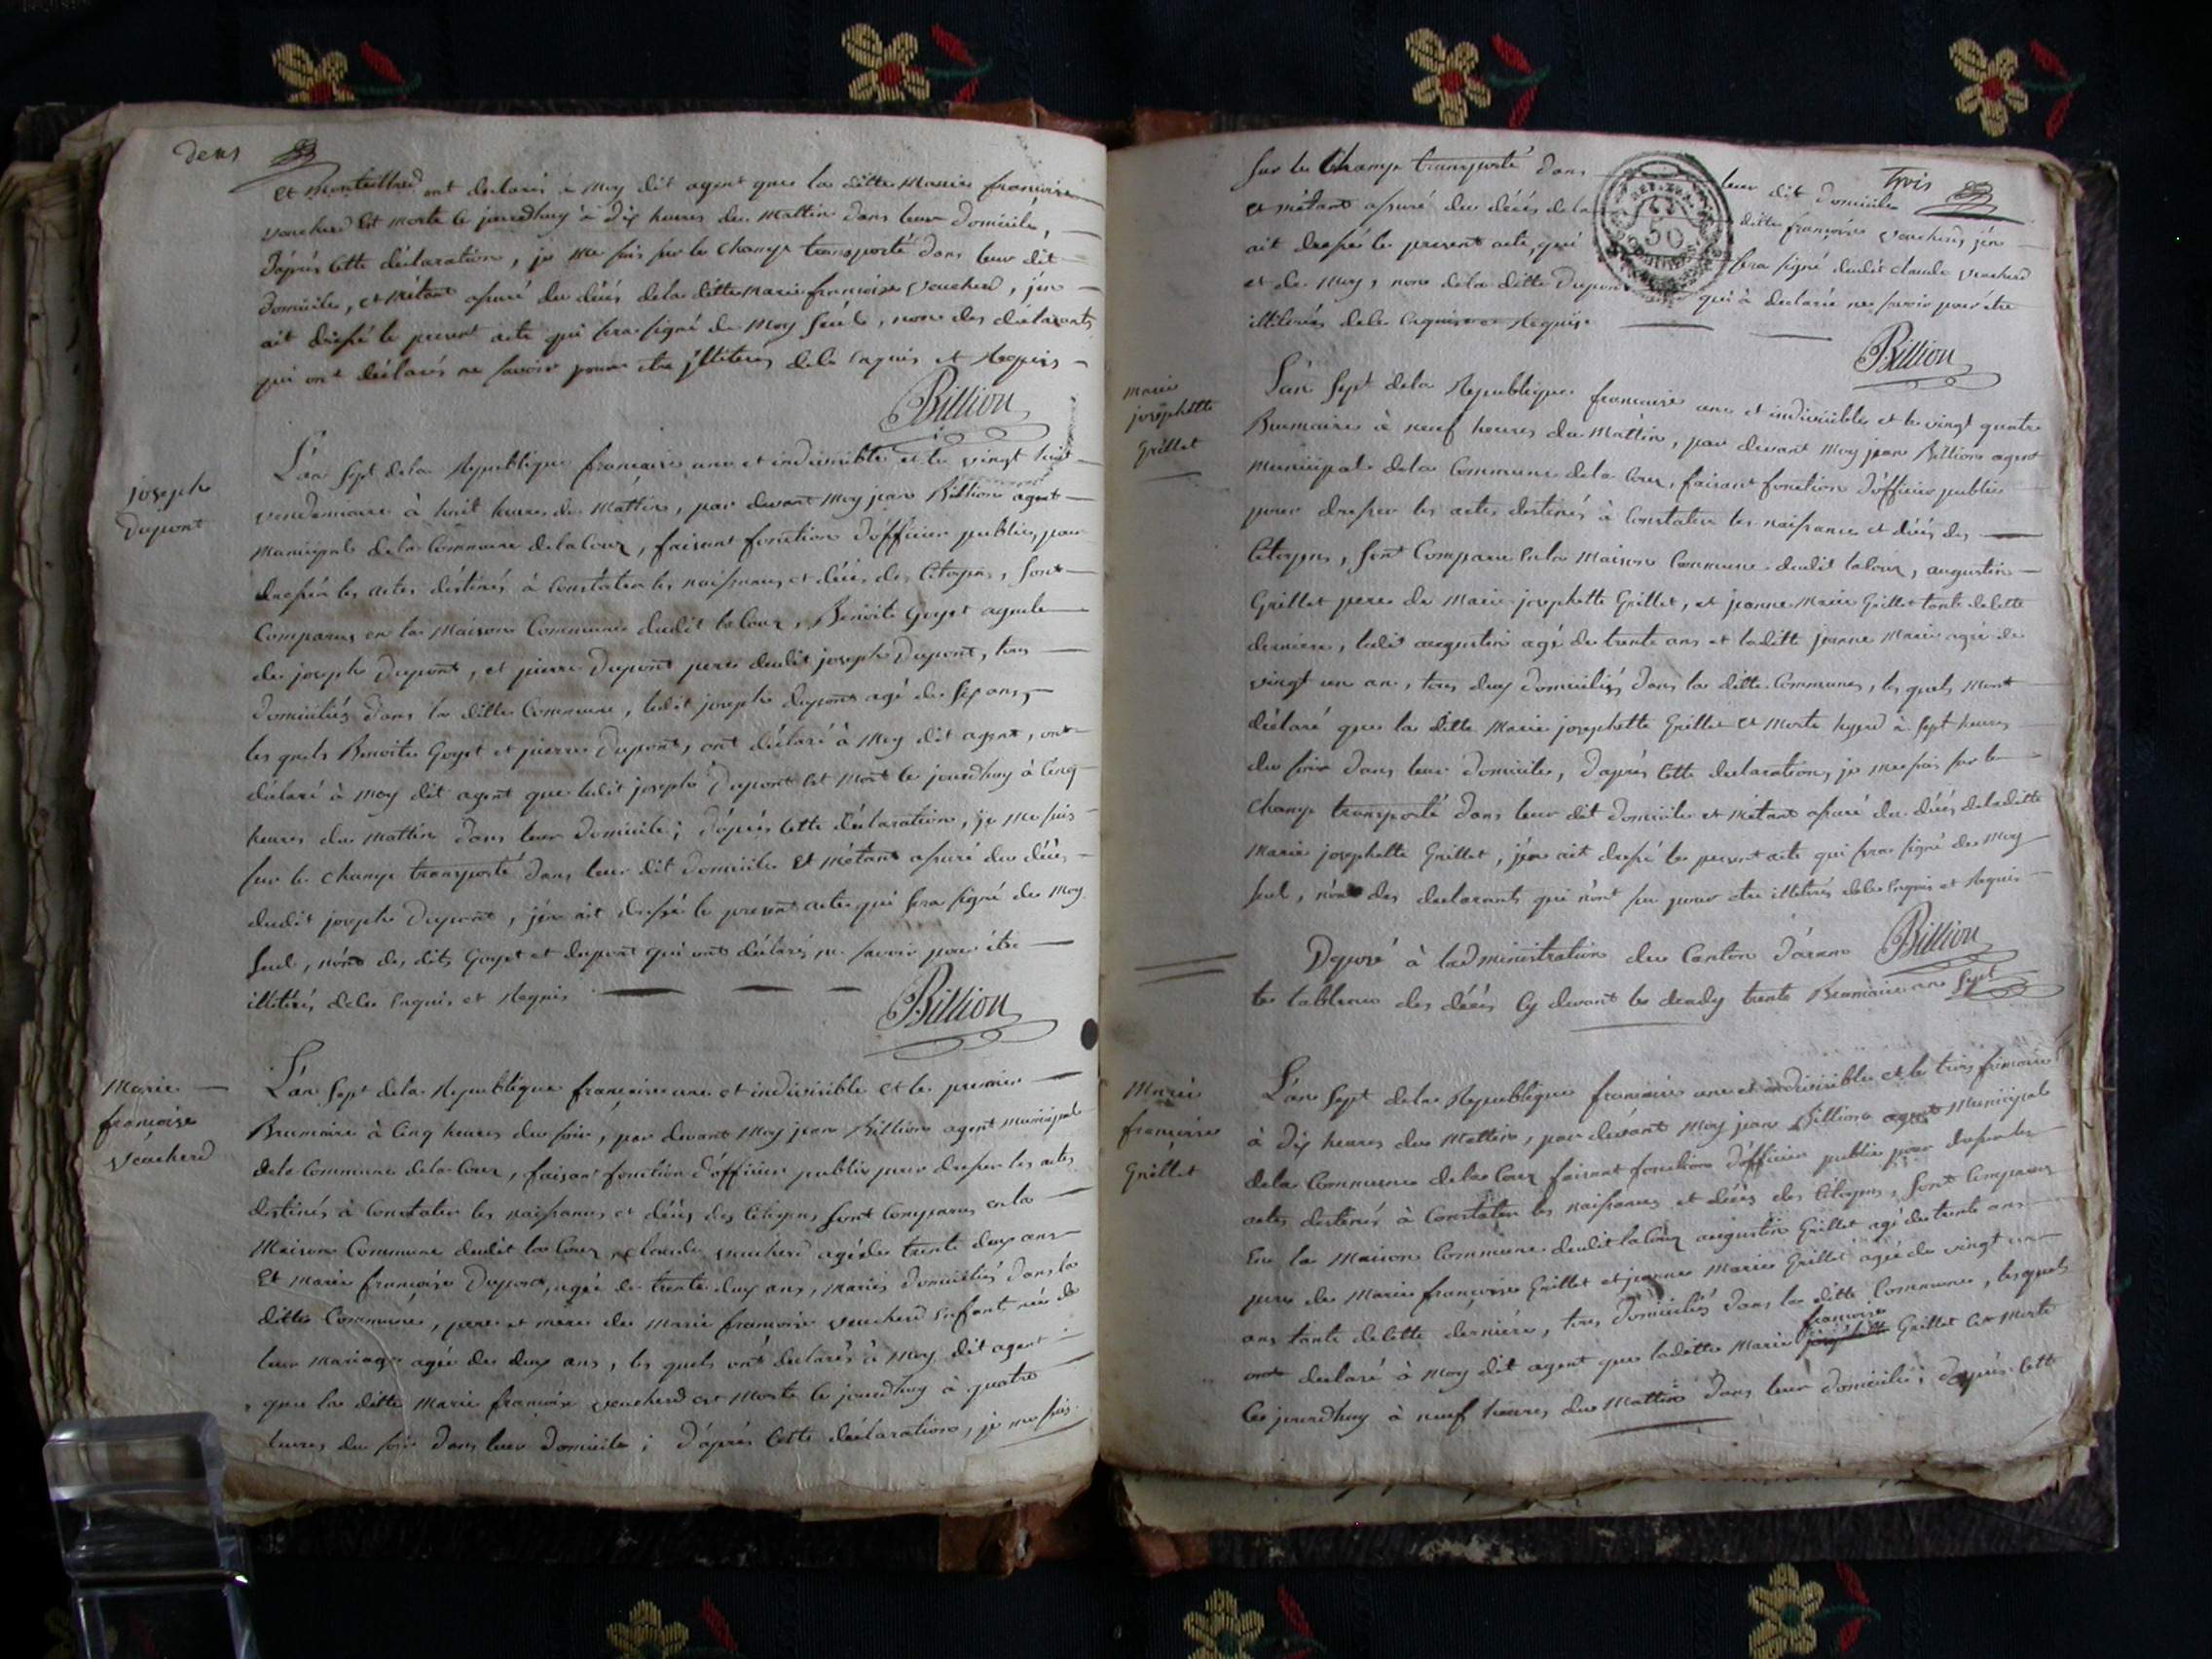 deux
et Monteillard ont déclarés à Moy dit agent que la ditte Marie françoise
voucherd Est morte le jourdhuy à dix heures du Mattin dans leur domicile,
d'aprés cette déclaration, je me suis sur le champs transporté dans leur dit
domicile, et m'étant assuré du décés dela ditte Marie françoise voucherd, j'en
ait dressé le present acte qui sera signé de Moy seul, non des déclarants
qui ont déclarés ne savoir pour être illiterés de le enquis et Requis
Billion
joseph
Dupont
L'an sept dela Republique francaise une et indivisible et le vingt huit
vendemiaire à huit heures du Mattin, par devant Moy jean Billion agent
Municipal dela Commune dela Coux, faisant fonction d'officier public, pour
dresser les actes déstinés à Constater les naissances et décés des Citoyens, sont
Comparus en la Maison Commune dudit la Coux, Benoite Goyet ayeule
de joseph Dupont, et pierre Dupont pere dudit joseph Dupont, tous
domiciliés dans la ditte Commune, ledit joseph dupont agé de six ans,
les quels Benoite Goyet et pierre Dupont, ont déclaré à Moy dit agent, ont
déclaré à Moy dit agent que ledit joseph Dupont Est Mort le jourdhuy à Cinq
heures du Mattin dans leur domicile; d'aprés Cette déclaration, je Me suis
sur le champs transporté dans leur dit domicile Et M'étant assuré du décés
dudit joseph Dupont, j'en ait dressé le present acte qui sera signé de Moy
seul, non des dits Goyet et dupont qui ont déclarés ne savoir pour être
illitérés, de le enquis et Requis
Billion
Marie
françoise
Voucherd
L'an sept dela Republique française une et indivisible et le premier
Brumaire à Cinq heures du soir, par devant Moy jean Billion agent Municipal
dela Commune dela Coux, faisant fonction d'officier public pour dresser les actes
déstinés à Constater les naissances et décés des Citoyens sont Comparus en la
Maison Commune dudit la Coux, Claude voucherd agé de trente deux ans
Et Marie françoise Dupont, agée de trente deux ans, Mariés domiciliés dans la
ditte Commune, pere et mere de Marie françoise voucherd enfant née de
leur Mariage agée de deux ans, les quels ont déclarés à Moy dit agent
que la ditte Marie françoise voucherd est Morte le jourdhuy à quatre
heures du soir dans leur domicile; d'aprés Cette déclaration, je me suis
Trois
sur le Champs transporté dans leur dit domicile
et m'étant assuré du décés dela ditte françoise voucherd, j'en
ait dressé le present acte, qui sera signé dudit claude voucherd
et de Moy, non dela ditte Dupont qui à declarée ne savoir pour être
illiterés de le enquise et Requise
Billion
marie
josephette
Grillet
L'an sept dela Republique francaise une et indivisible et le vingt quatre
Brumaire à neuf heures du Mattin, par devant Moy jean Billion agent
Municipal dela Commune dela Coux, faisant fonction d'officier public
pour dresser les actes destinés à Constater les naissances et décés des
Citoyens, sont Comparus en la Maison Commune dudit laCoux, augustin
Grillet pere de Marie josephette Grillet, et jeanne Marie Grillet tante de cette
derniere, ledit augustin agé de trente ans et laditte jeanne Marie agée de
vingt un ans, tous deux domiciliés dans la ditte Commune, les quels m'ont
déclaré que la ditte Marie josephette Grillet Est Morte hyerd à sept heures
du soir dans leur domicile, d'aprés Cette declaration, je me suis sur le
champs transporté dans leur dit domicile et M'étant assuré du décés de laditte
Marie josephette Grillet, j'en ait dressé le present acte qui sera signé de Moy
seul, non des declarants qui n'ont su pour etre illiterés de le enquis et Requis
Billion
Deposé à ladministration du Canton d'aranc
le tableau des décés Cy devant le decady trente Brumaire an sept
Marie
françoise
Grillet
L'an sept dela Republique francaise une et indivisible et le trois frimaire
à Dix heures du Mattin, par devant Moy jean Billion agent Municipal
dela Commune dela Coux faisant fonction d'officier public pour dresser les
actes destinés à Constater les naissances et décés des Citoyens, sont Comparus
En la Maison Commune dudit laCoux augustin Grillet agé de trente ans
pere de Marie françoise Grillet et jeanne Marie Grillet agée de vingt un
ans tante de cette derniere, tous domiciliés dans la ditte Commune, lesquels
ont declaré à Moy dit agent que laditte Marie françoise Grillet est Morte
Ce jourdhuy à neuf heures du Mattin dans leur domicile; d'aprés Cette